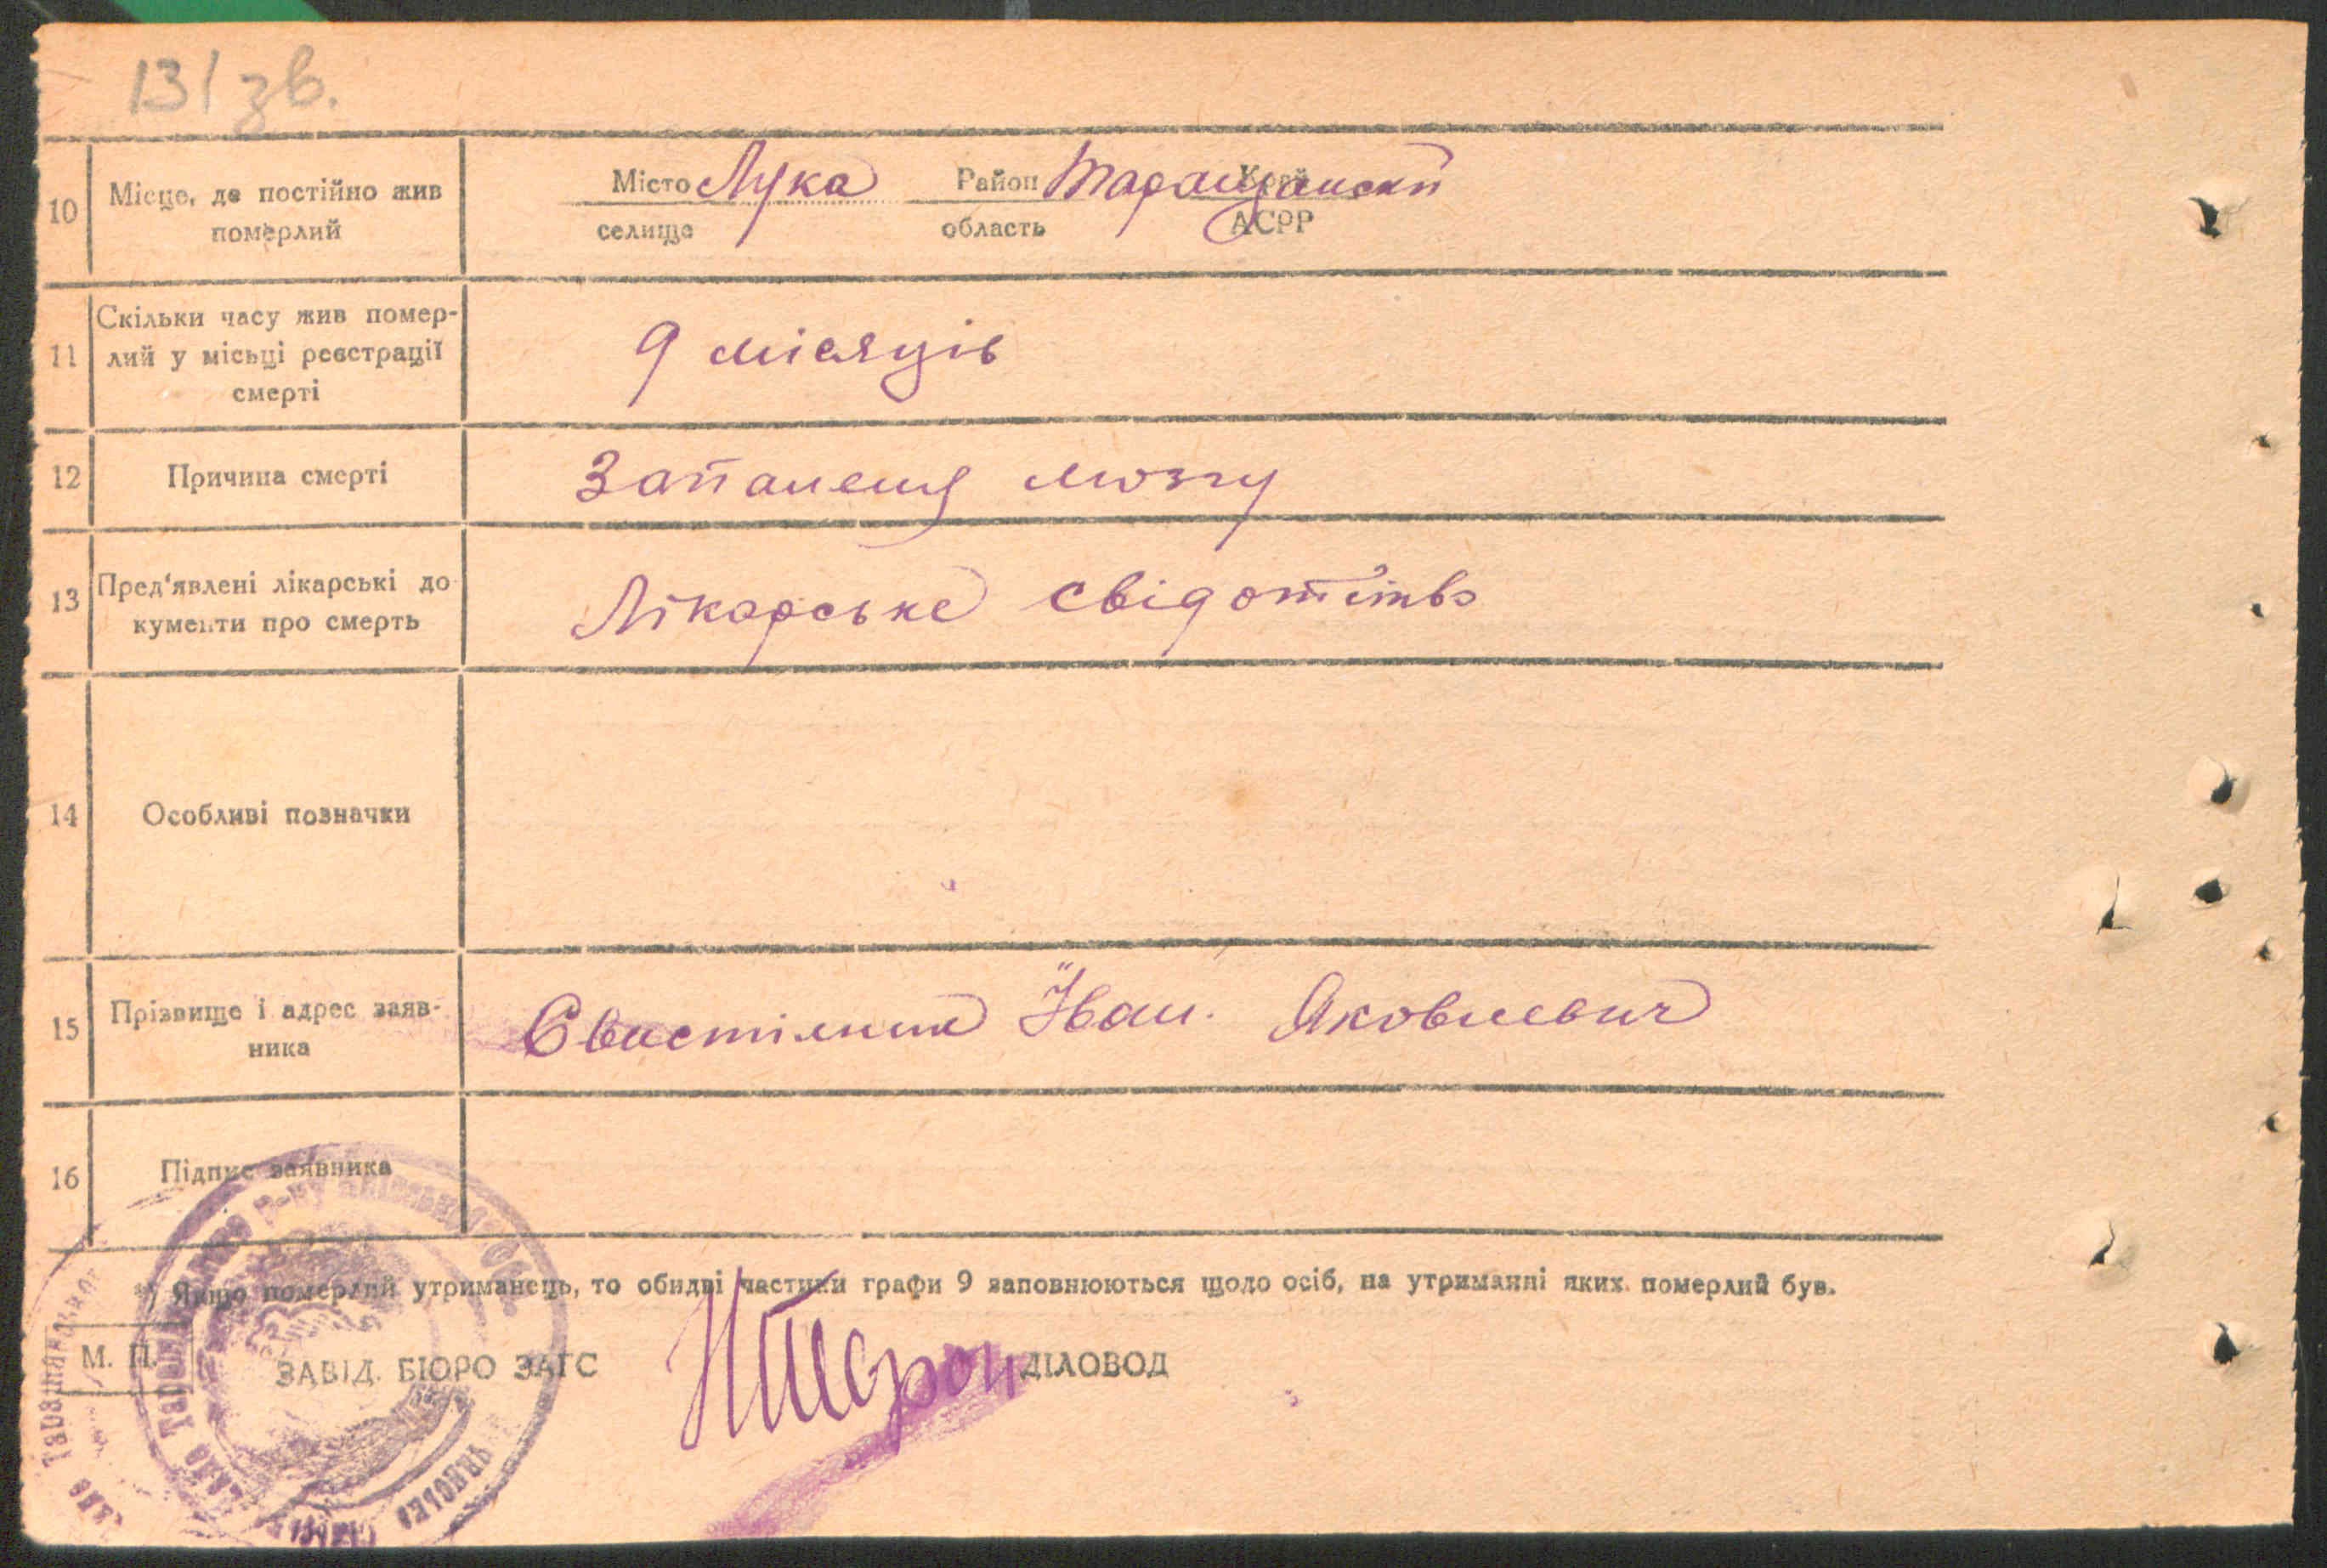 131 зв.
10 Місце, де постійно жив померлий
Місто Лука Район Таращанский Край
селище область АСРР
11 Скільки часу жив помер-
лий у місьці реєстрації
смерті
9 місяців
12 Причина смерті
Запаления мозгу
13 Пред'явлені лікарські до
кументи про смерть
Лікарське свідотство
14 Особливі позначки
15 Прізвище і адрес заяв-
ника
Іван. Яковлевич
16 Підпис заявника
*) Якщо померлий утриманець, то обидві частики графи 9 заповнюються щодо осіб, на утриманні яких померлий був.
М. П.
ЗАВІД. БЮРО ЗАГС ДІЛОВОД